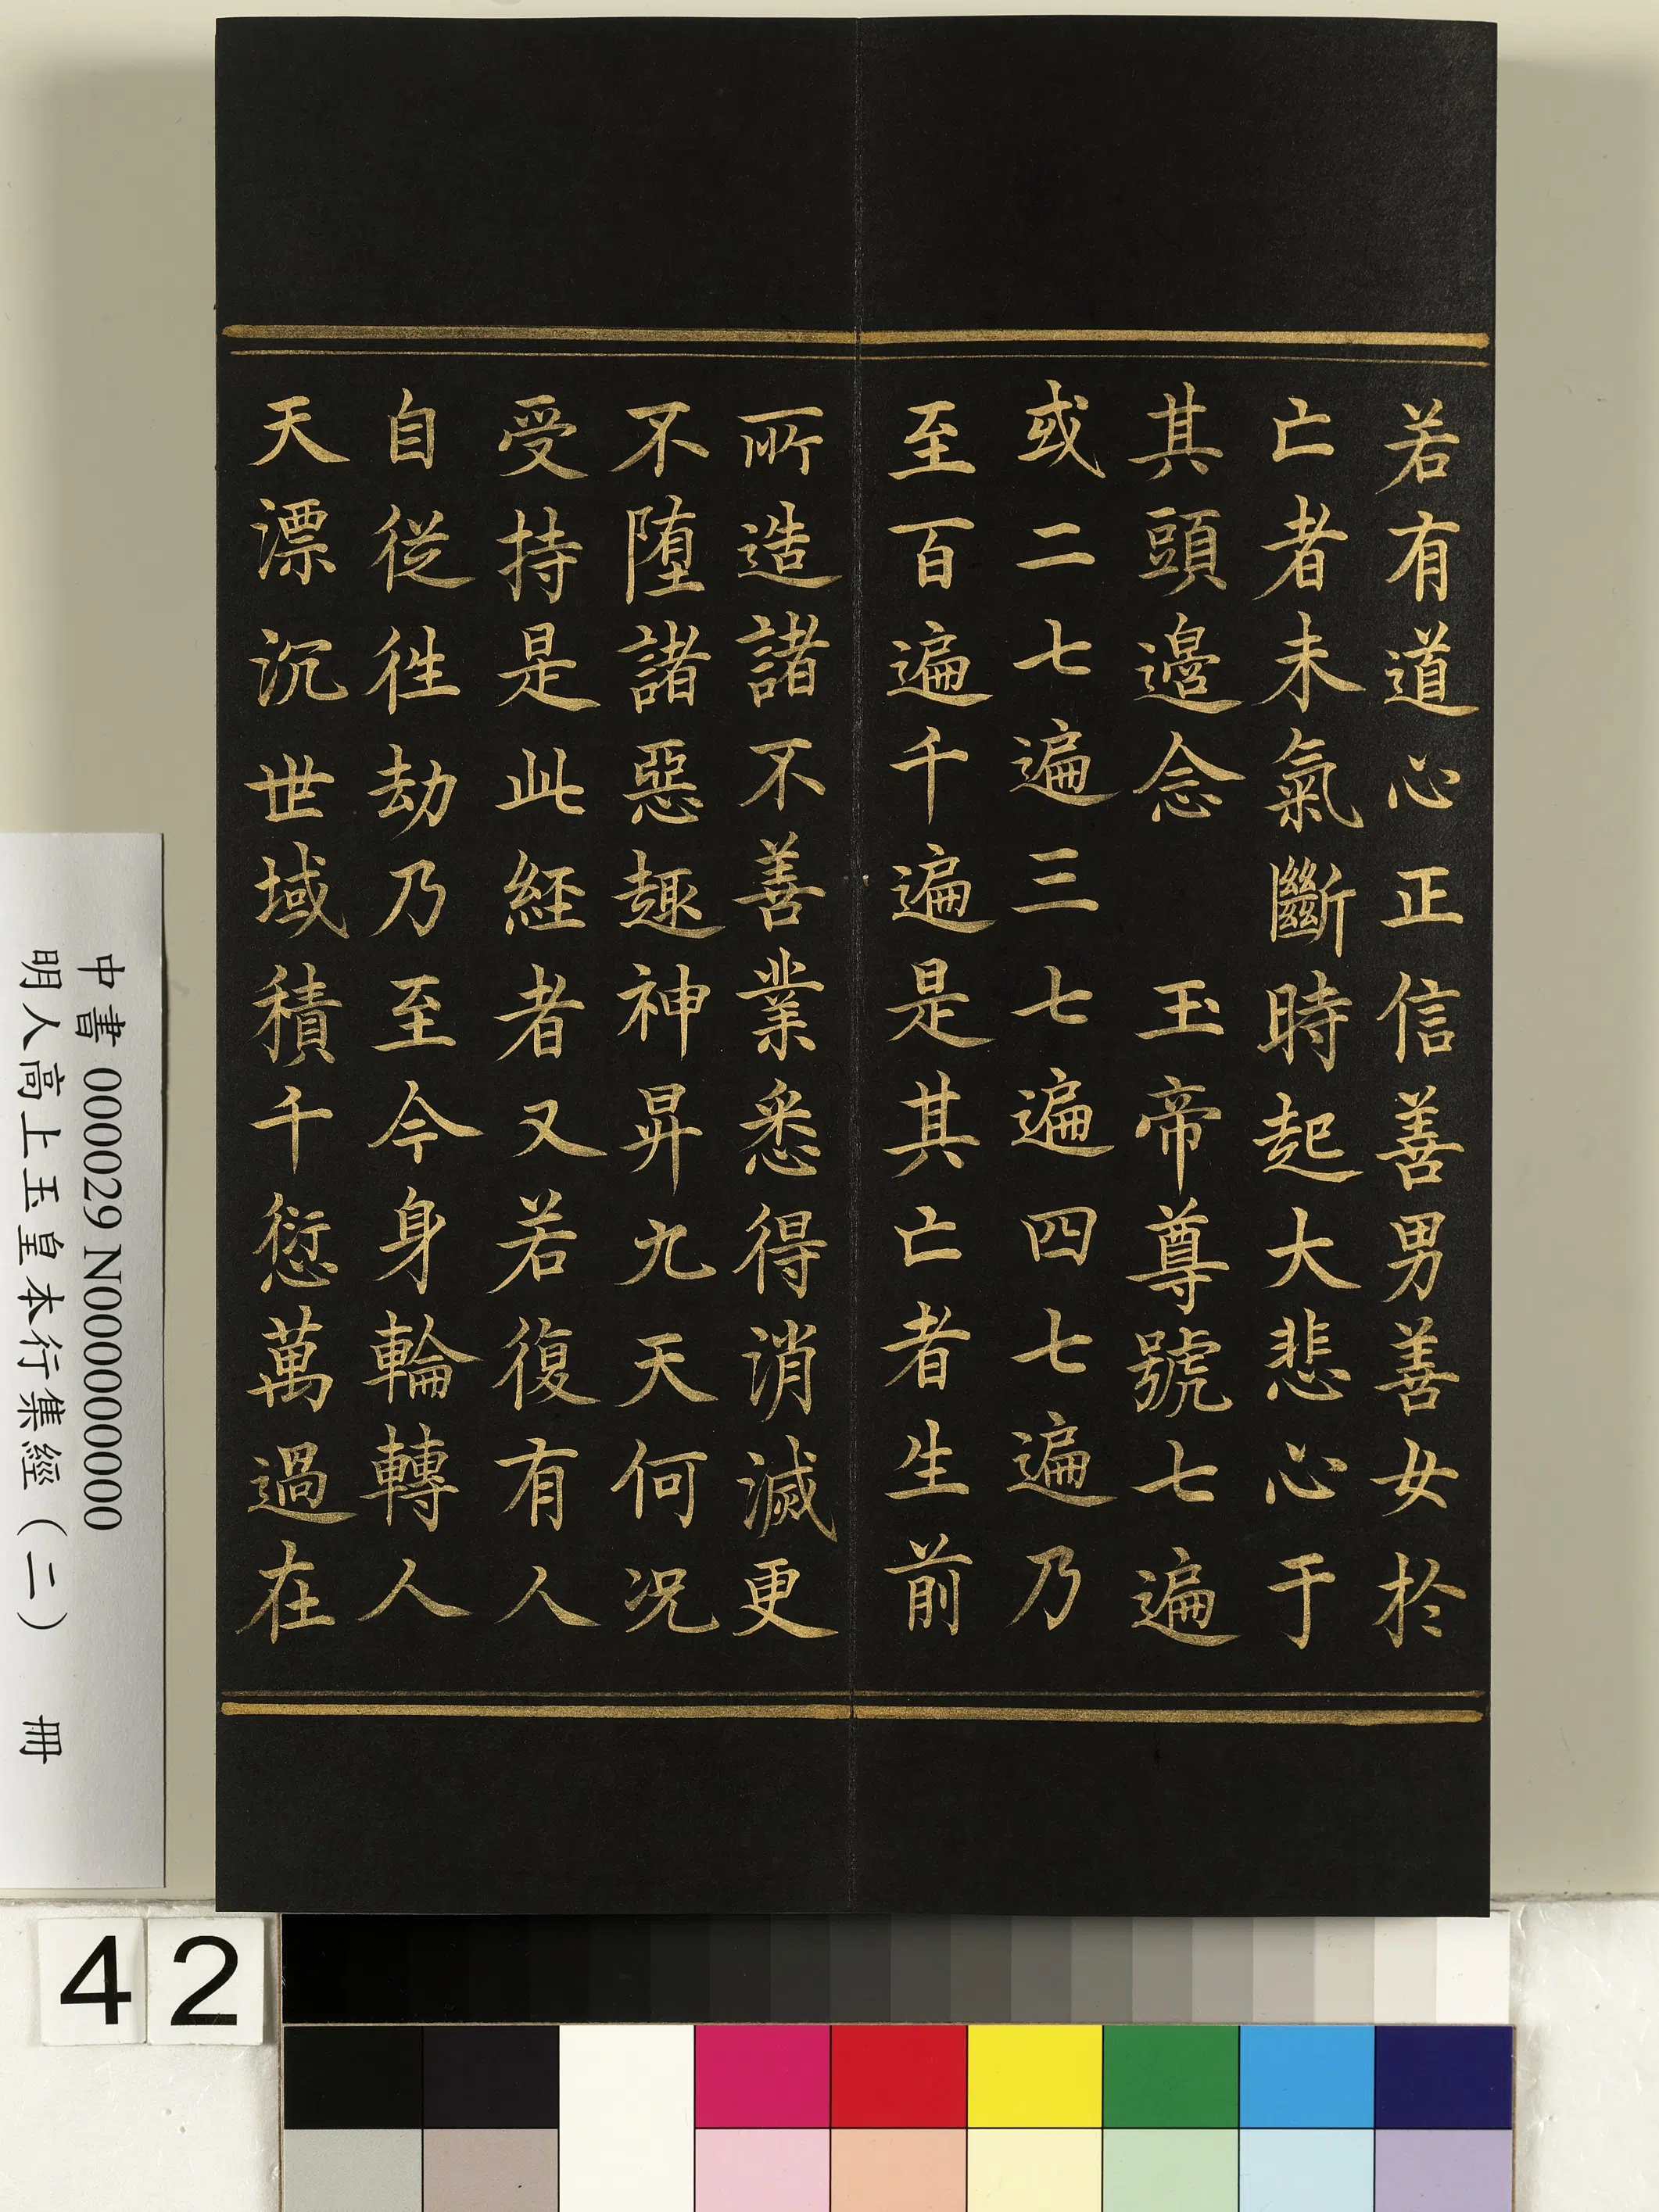 若有道心正信善男善女於
亡者未氣斷時起大悲心于
其頭邊念　玉帝尊號七遍
或二七遍三七遍四七遍乃
至百遍千遍是其亡者生前
所造諸不善業悉得消滅更
不墮諸惡趣神昇九天何况
受持是此經者又若復有人
自從徃劫乃至今身輪轉人
天漂沉世域積千愆萬過在
中書 000029 N000000000
明人高上玉皇本行集經（二） 冊
42